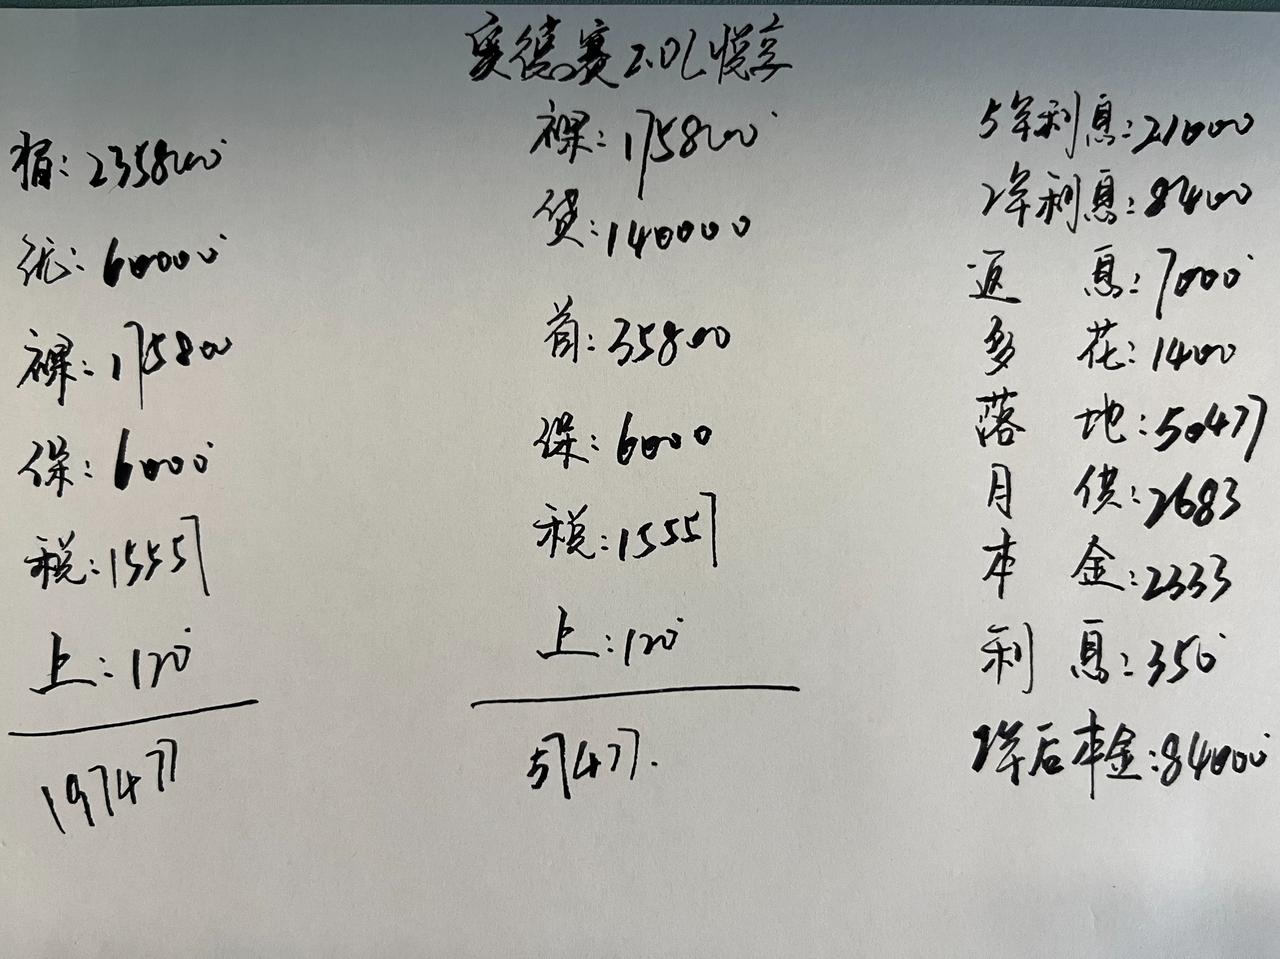 奥德赛2.0L悦享
指:235800
优:60000
裸:175800
保:6000
税:15557
上:120
197477
裸:175800
贷:140000
首:35800
保:6000
税:15557
上:120
57477.
5年利息:21000
2年利息:8400
返息:7000
多花:1400
落地:50477
月供:2683
本金:2333
利息:350
2年后本金:84000